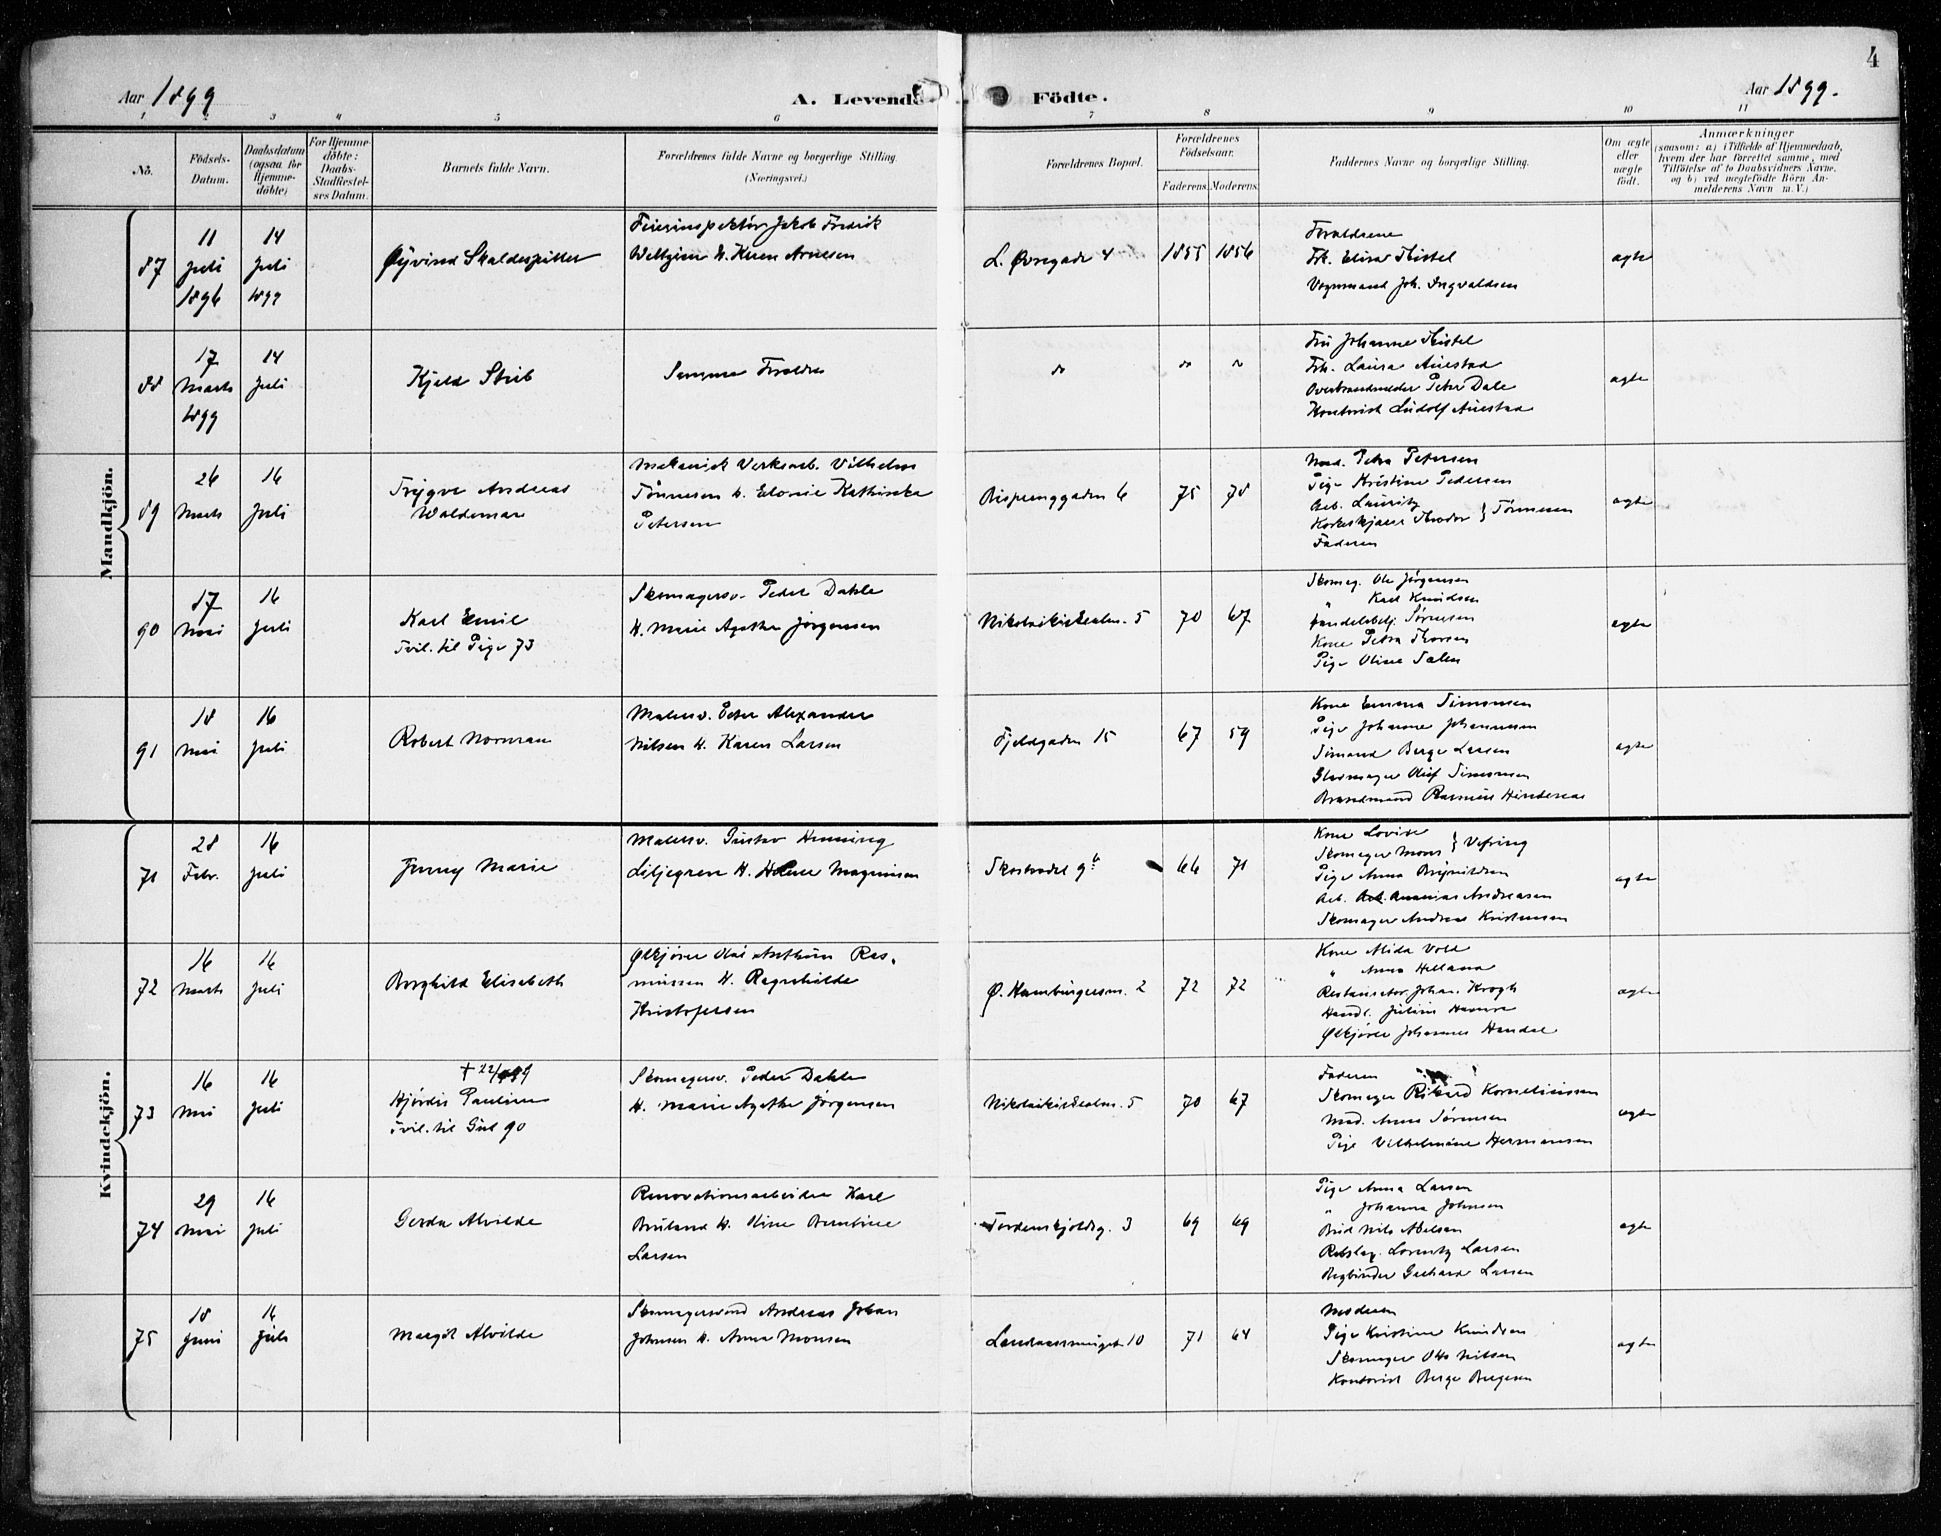 4
Aar 1899
A. Levende Födte.
Aar 1899.
1 2 3 4 5 6 7 8 9 10 11
No.
Födsels-
Datum.
Daabsdatum
(ogsaa for
Hjemme-
döbte)
For Hjemme-
döbte:
Daabs-
Stadfæstel-
ses Datum.
Barnets fulde Navn.
Forældrenes fulde Navne og borgerlige Stilling.
(Næringsvei.)
Forældrenes Bopæl.
Forældrenes
Födselsaar.
Faderens. Moderens.
Faddernes Navne og borgerlige Stilling.
Om ægte
eller
uægte
födt.
Anmærkninger
(saasom: a) i Tilfælde af Hjemmedaab,
hvem der har forrettet samme, med
Tilföielse af to Daabsvidners Navne,
og b) ved uægtefödte Börn An-
melderens Navn m. V.)
Mandkjön.
87
11
Juli
1896
14
Juli
1899
Øyvind Skaldespiller
Feierinspektör Jakob Fredrik
H. Karen Arnesen
L. Øvregade 4
1855
1856
Forældrene
Frk. Elise Kistel
Vognmand Joh. Ingvaldsen
ægte
88
17
Marts
1899
14
Juli
Kjeld Stub
Samme Forældre
Fru Johanne Kistel
Frk. Laura Auestad
Overbrandmelder Peter Dale
Kontorist Ludolf Auestad
ægte
89
26
Marts
16
Juli
Trygve Andreas
Waldemar
Mekanisk Verksarb. Vilhelm
Tönnesen H. Elonie Kathinka
Petersen
Bispenggaden 6
75
78
Mad. Petra Petersen
Pige Kristine Pedersen
Arb. Lauritz
Korkskjærer Theodor } Tönnesen
Faderen
ægte
90
17
Mai
16
Juli
Karl Emil
Tvil. til Pige 73
Skomagersv. Peder Dahle
H. Marie Agathe Jørgensen
Nikolaikirkealm. 5
70
67
Skomag. Ole Jørgensen
" Karl Knudsen
Handelsbetj. Sørensen
Kone Petra Thorsen
Pige Oline Talen
ægte
91
18
Mai
16
Juli
Robert Norman
Malersv. Peter Alexander
Nilsen H. Karen Larsen
Fjeldgaden 15
67
59
Kone Emma Simonsen
Pige Johanne Johannesen
Sömand Berge Larsen
Glasmager Oluf Simonsen
Brandmand Rasmus Hindenes
ægte
Kvindekjön.
71
28
Febr.
16
Juli
Jenny Marie
Malersv. Gustav Henning
Liljegren H. Helene Magnussen
Skostrædet 9b
66
71
Kone Lovise
Skomager Mons } Vefring
Pige Anna Brynildsen
Arb. Ananias Andreasen
Skomager Andreas Kristensen
ægte
72
16
Marts
16
Juli
Borghild Elisabeth
Ølkjörer Olai Anthun Ras-
mussen H. Ragnhilda
Kristofersen
Ø. Hamburgersm. 2
72
72
Kone Alida Vold
" Anna Helland
Restauratør Johan Krogh
Handl. Julius Hamre
Ølkjörer Johannes Handal
ægte
73
16
Mai
16
Juli
+ 22/
Hjördis Pauline
Tvil. til Gut 90
Skomagersv. Peder Dahle
H. Marie Agathe Jørgensen
Nikolaikirkealm. 5
70
67
Faderen
Skomager Rikard Korneliussen
Mad. Anna Sørensen
Pige Vilhelmine Hermansen
ægte
74
29
Mai
16
Juli
Gerda Alvilde
Renovationsarbeider Karl
Bruland H. Oline Berntine
Larsen
Tordenskjoldsg. 3
69
69
Pige Anna Larsen
" Johanna Johnsen
Bud Nils Abelsen
Rebslag. Lorentz Larsen
Bogbinder Gerhard Larsen
ægte
75
18
Juni
16
Juli
Margit Alvilde
Skomagersvend Andreas Johan
Johnsen H. Anna Monsen
Landaassmuget 10
71
64
Moderen
Pige Kristine Knudsen
Skomager Otto Nilsen
Kontorist Berge Bergesen
ægte